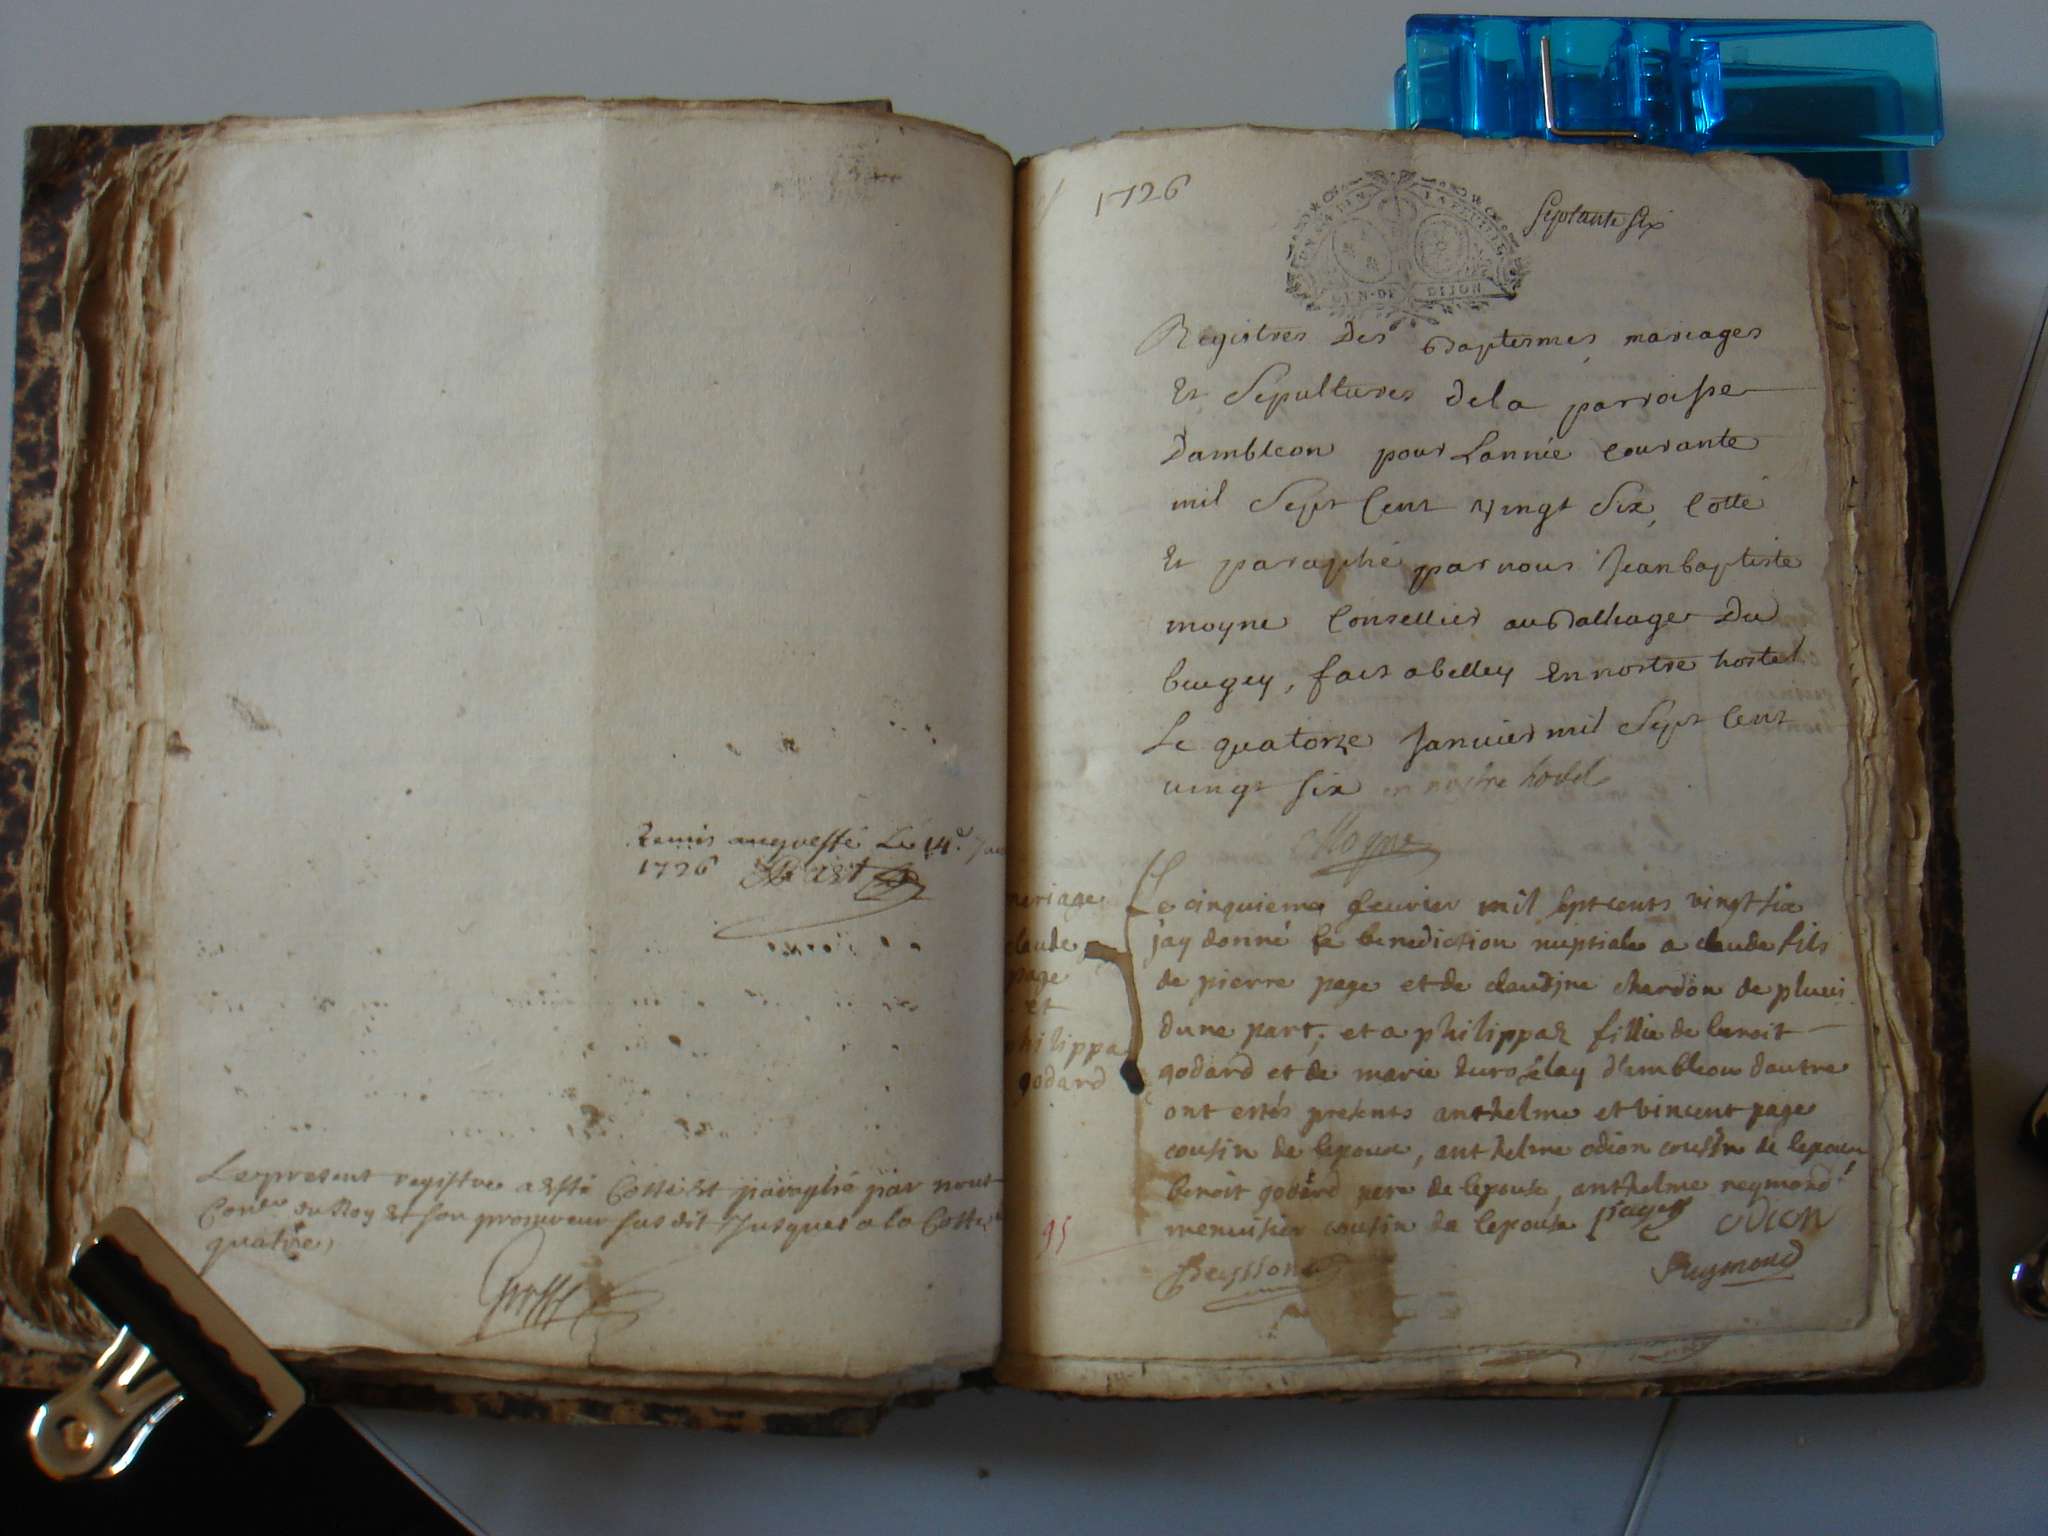 Remis augreffé Le 14e Jan
1726
Le present registre a esté Cotté et paraphé par nous
Coner du Roy et son procureur susdit Jusques a la Cotte
quatre,
1726
Septante Six
GEN·DE DIJON
Registres Des Baptesmes mariages
Et Sepultures de la parroisse
Dambleon pour Lannée Courante
mil Sept Cent vingt Six, Cotté
Et paraphé par nous Jean baptiste
moyne Conseillier au Balliage Du
beugey, fait a belley En nostre hostel
Le quatorze Janvier mil Sept Cent
vingt Six en nostre hotel
Moyne
mariage
claude
page
et
philippa
godard
Le cinquieme feuvrier mil sept cents vingt six
jay donné la benediction nuptiale a claude fils
de pierre page et de claudine chardon de
dune part, et a philippaz fillie de benoit
godard et de marie d'ambleon dautre
ont estés presents anthelme et vincent page
cousin de lepoux, anthelme odion cousin de lepoux
benoit godard pere de lepouse, anthelme reymond
menuisier cousin de lepouse page odion
95
Reymond